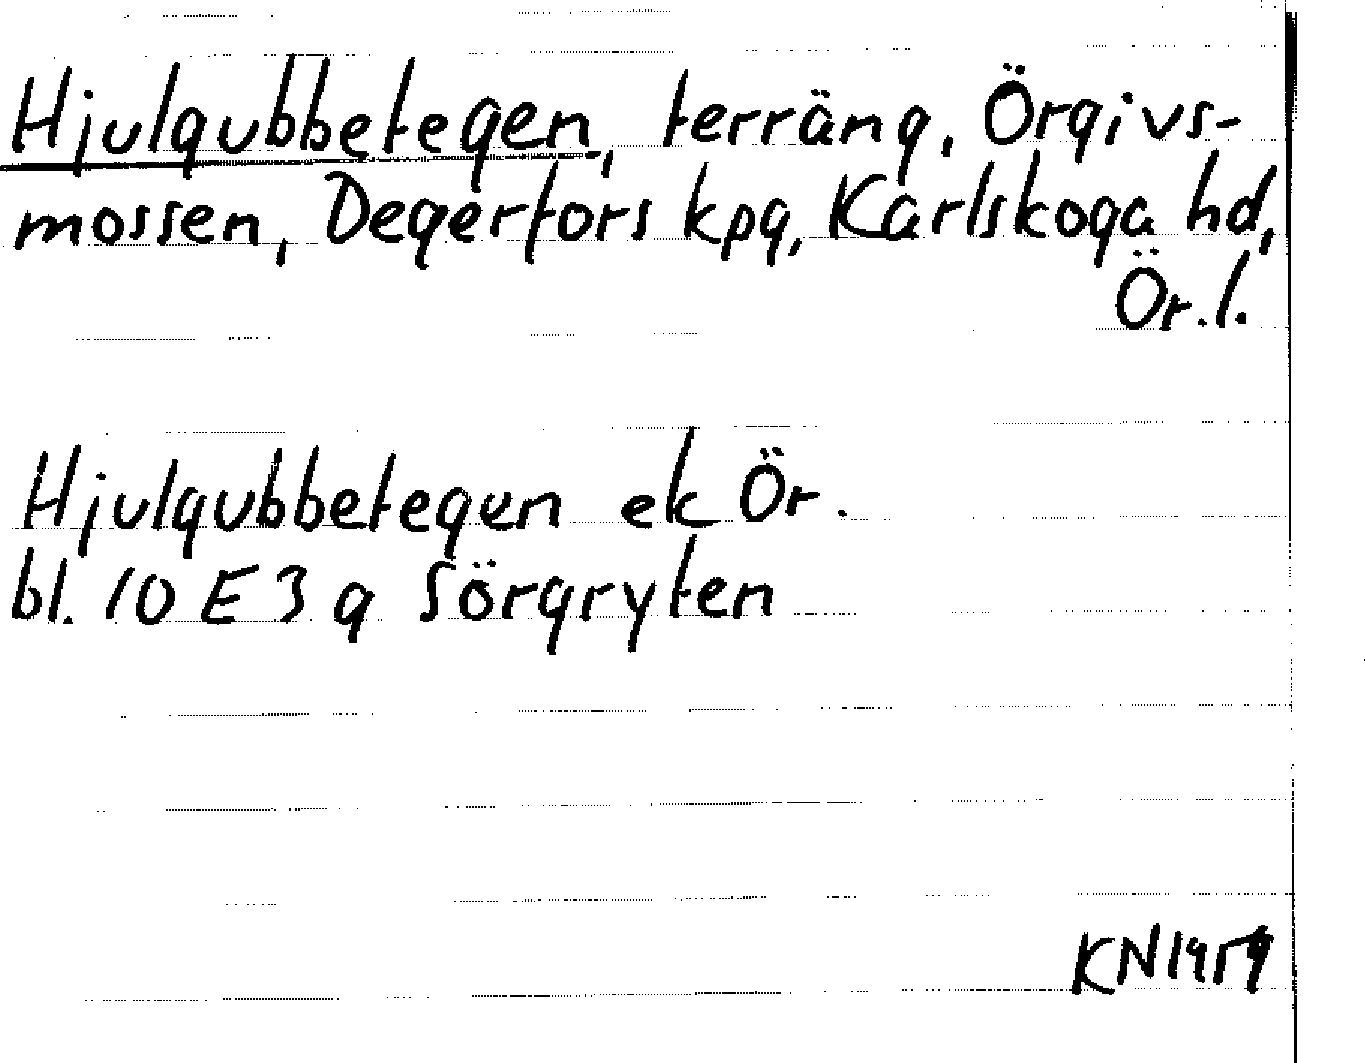 Hjulgubbetegen, terräng, Örgivs-
mossen, Degerfors kpg, Karlskoga hd,
Ör. l.
Hjulgubbetegen ek Ör.
bl. 10 E 3 g Sörgryten
KN 1959